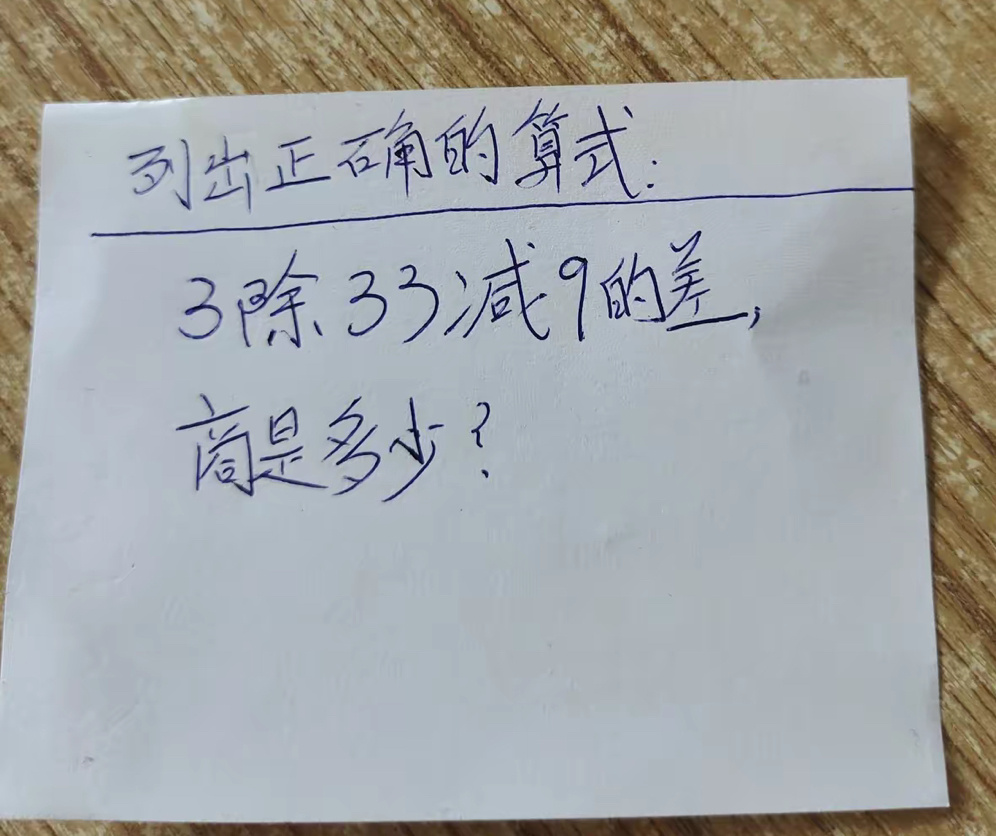 列出正确的算式.
3除33减9的差,
商是多少?